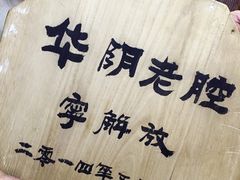 华阴老腔
宁解放
二零一四年